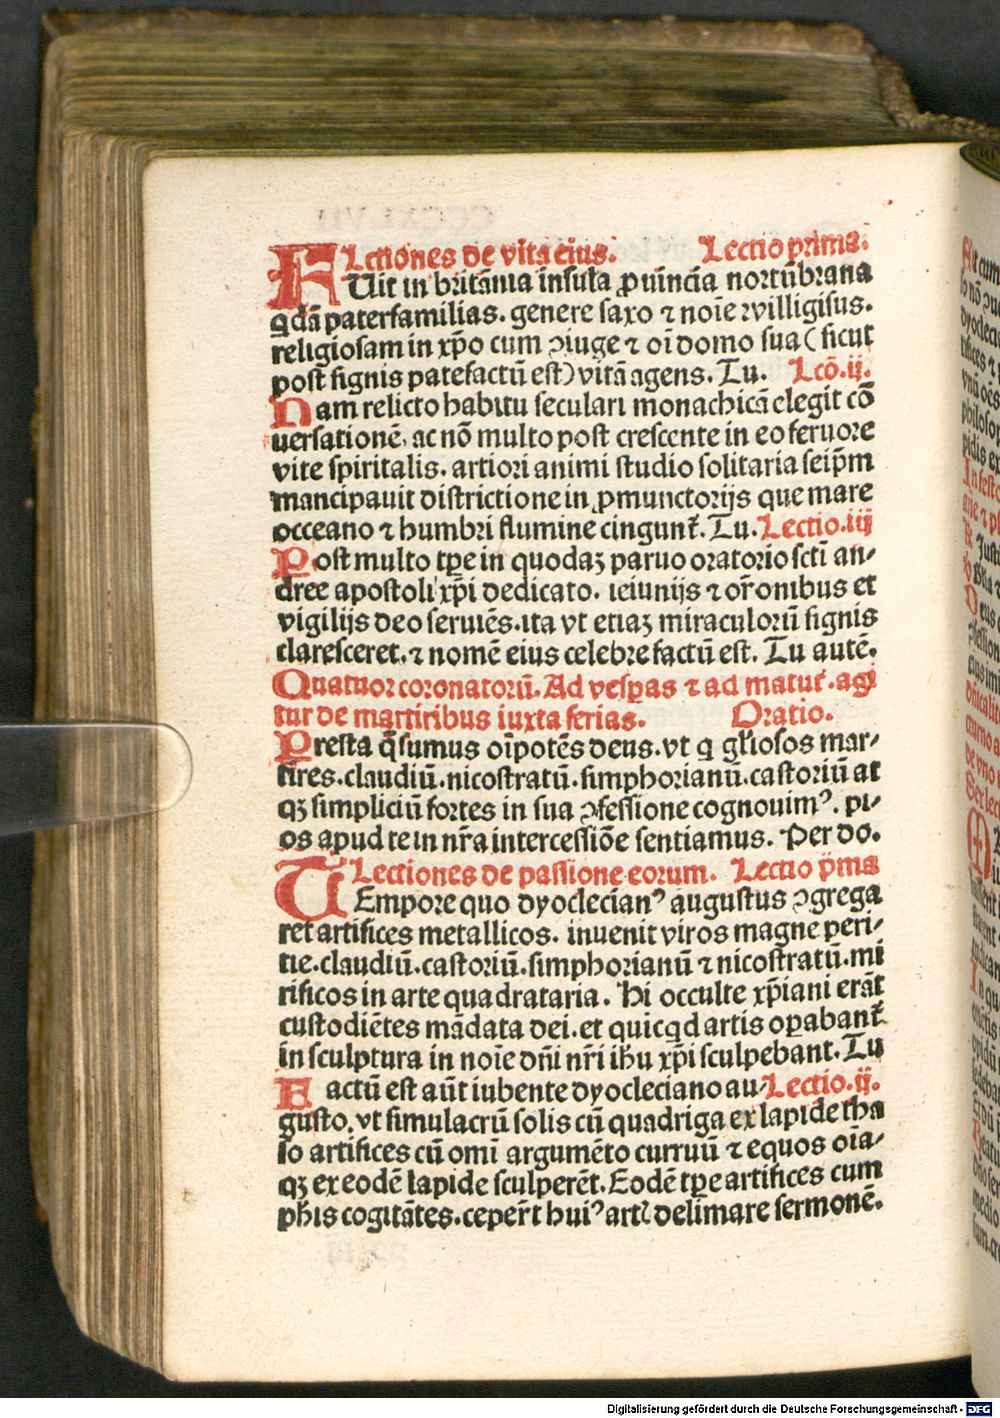 Lectiones de vita eius. Lectio prima.
FUit in britānia insula ꝓuīncia nortūbrana
qdā paterfamilias. genere saxo ⁊ noīe willigisus.
religiosam in xp̄o cum ↄiuge ⁊ oī domo sua (sicut
post signis patefactū est) vitā agens. Tu. Lcō.ij.
Nam relicto habitu seculari monachicā elegit cō
uersationē. ac nō multo post crescente in eo feruore
vite spiritalis. artiori animi studio solitaria seip̄m
mancipauit districtione in ꝓmunctorijs que mare
occeano ⁊ humbri flumine cingunt̄. Tu. Lectio.iij
Post multo tꝑe in quodaz paruo oratorio scti an-
dree apostoli xp̄i dedicato. ieiunijs ⁊ or̄onibus et
vigilijs deo seruiēs. ita vt etiaz miraculorū signis
claresceret. ⁊ nomē eius celebre factū est. Tu autē.
Quatuor coronatorū. Ad vesꝑas ⁊ ad matut̄. agi
tur de martiribus iuxta ferias. Oratio.
Presta q̄sumus oīpotēs deus. vt q gl̄iosos mar-
tires. claudiū. nicostratū. simphorianū. castoriū at
qꝫ simpliciū fortes in sua ↄfessione cognouimꝰ. pi-
os apud te in nr̄a intercessiōe sentiamus. Per do.
Lectiones de passione eorum. Lectio pͥma
TEmpore quo dyoclecianꝰ augustus ↄgrega
ret artifices metallicos. inuenit viros magne peri-
tie. claudiū. castoriū. simphorianū ⁊ nicostratū. mi
rificos in arte quadrataria. Hi occulte xp̄iani erāt
custodiētes mādata dei. et quicqd artis oꝑabant̄
in sculptura in noīe dn̄i nr̄i ihu xp̄i sculpebant. Tu
Factū est aūt iubente dyocleciano au- Lectio.ij.
gusto. vt simulacrū solis cū quadriga ex lapide tha
so artifices cū omī argumēto curruū ⁊ equos oīa-
qꝫ ex eodē lapide sculperēt. Eodē tꝑe artifices cum
phis cogitātes. ceper̄t huiꝰ artꝭ delimare sermonē.
Digitalisierung gefördert durch die Deutsche Forschungsgemeinschaft - DFG